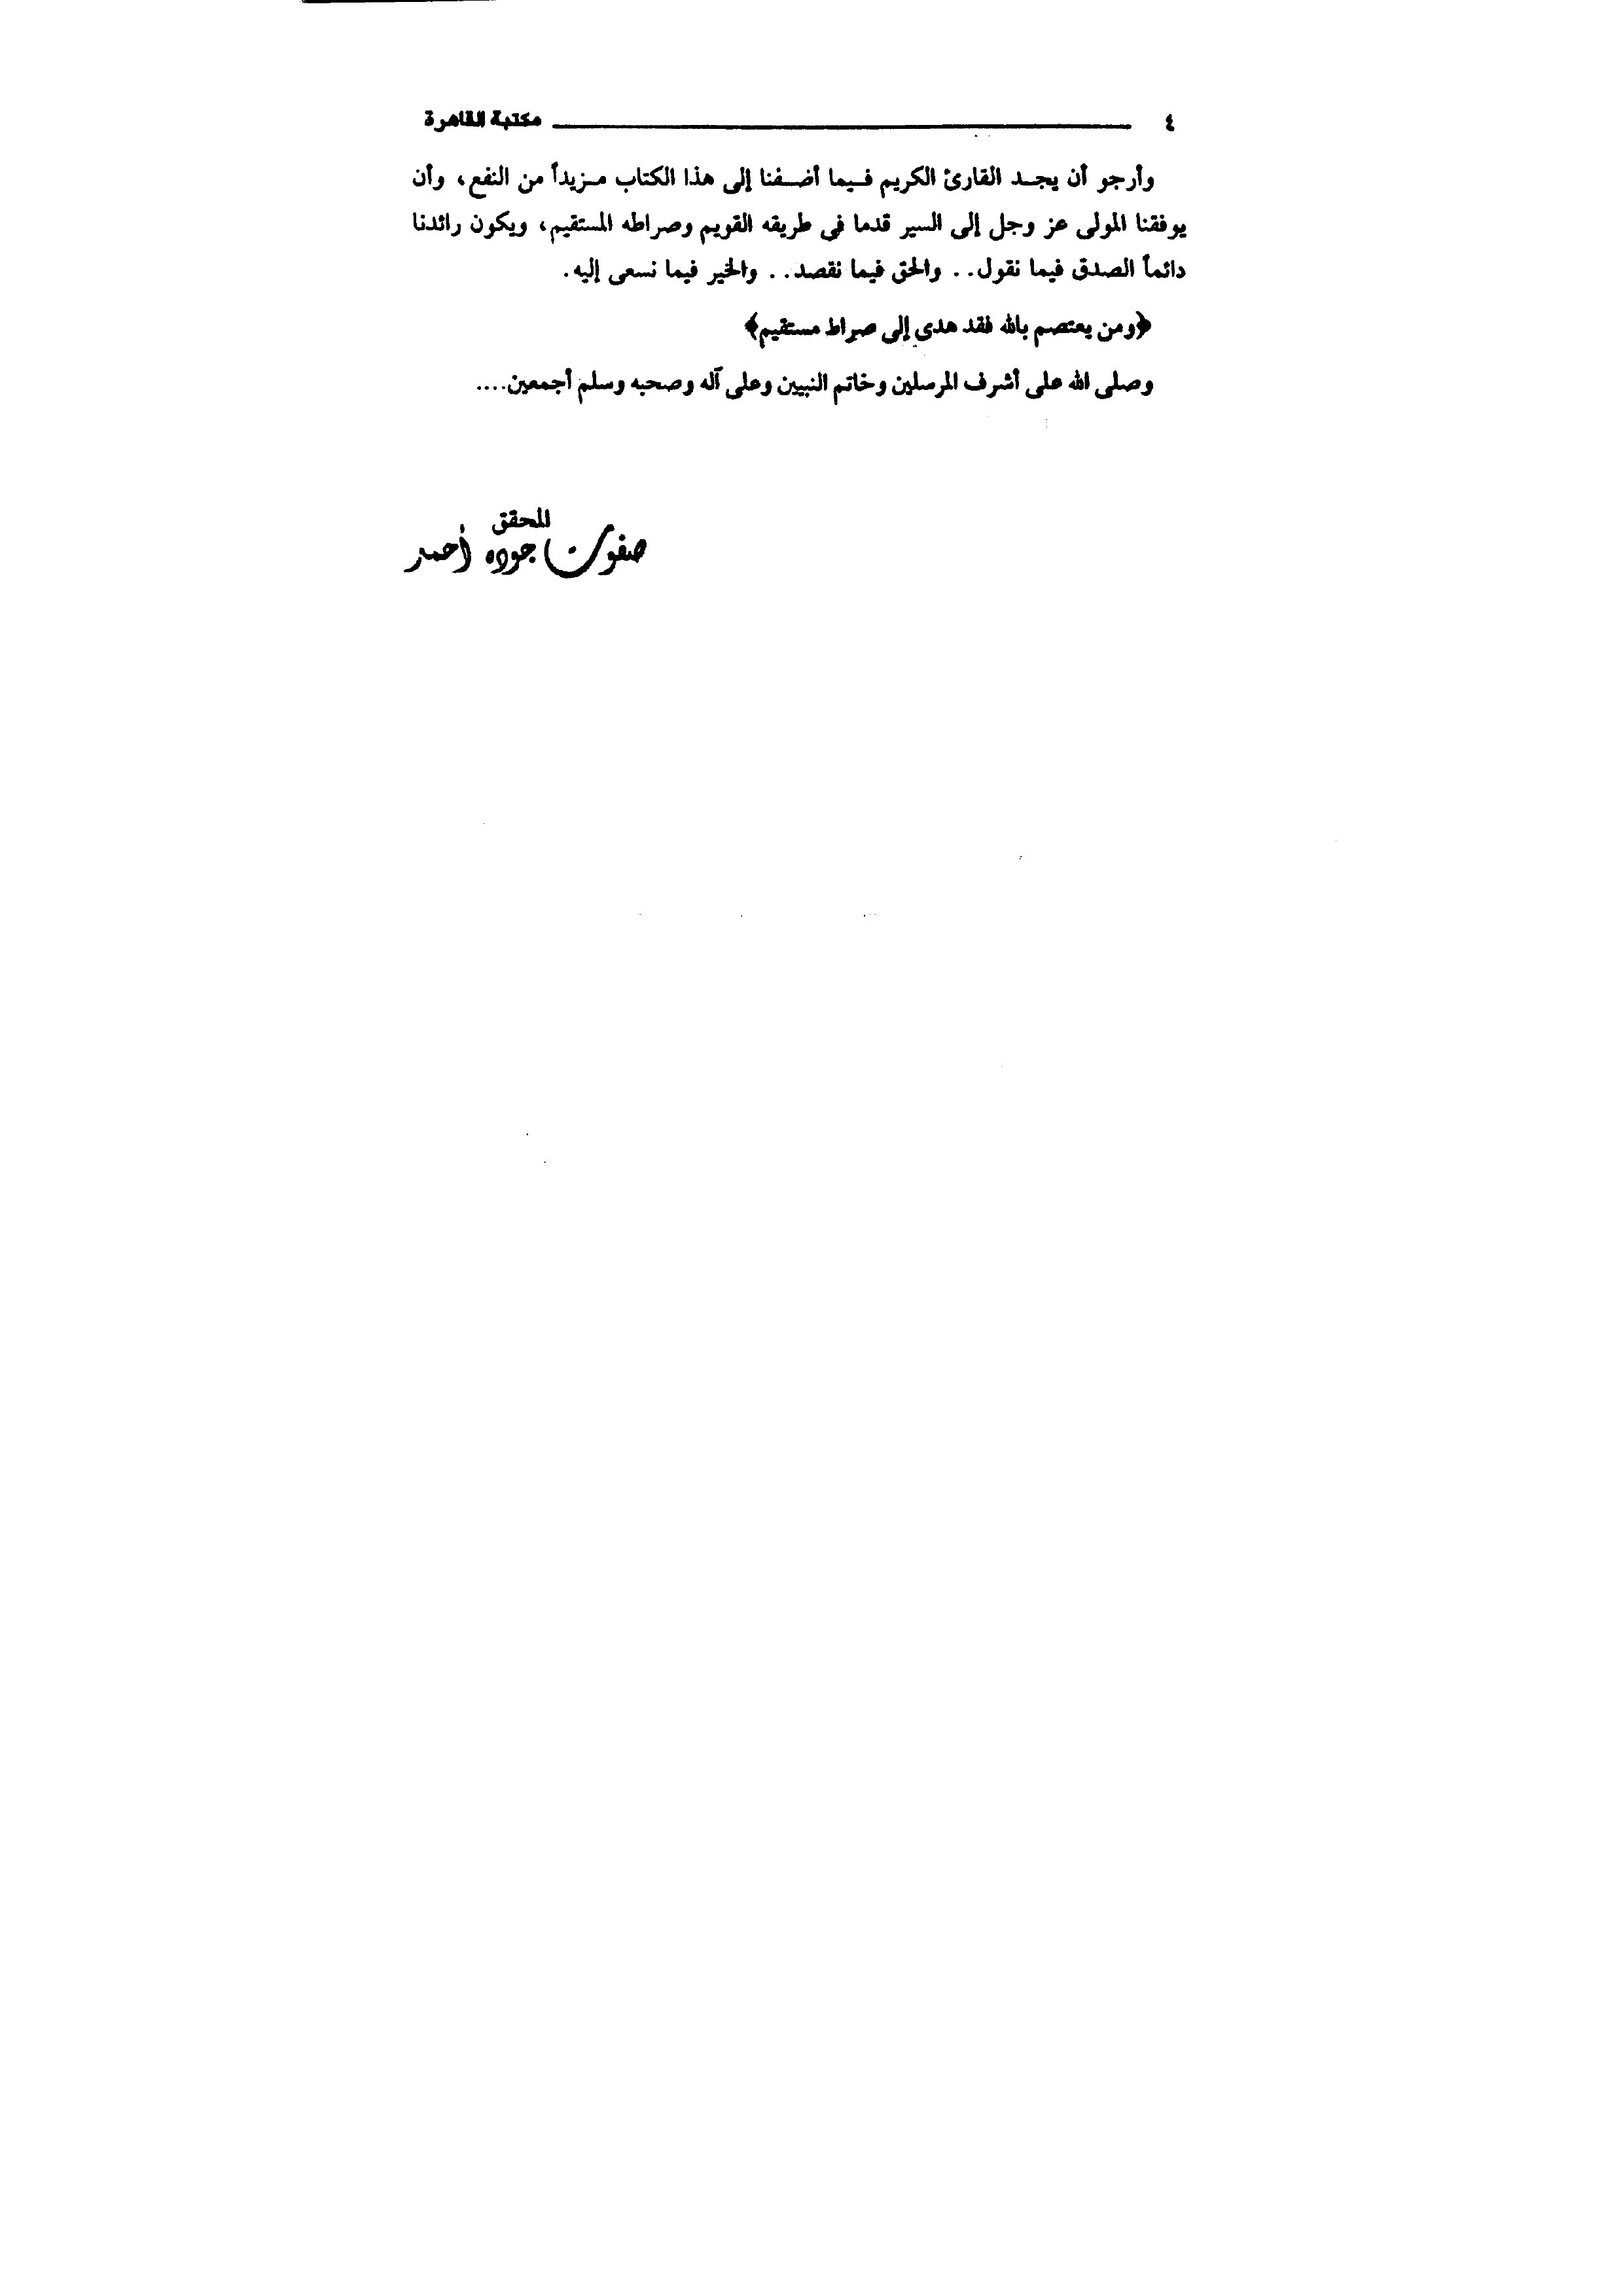 ٤ مكتبة القاهرة
وأرجو أن يجد القارئ الكريم فيما أضفنا إلى هذا الكتاب مزيداً من النفع، وأن
يوفقنا المولى عز وجل إلى السير قدما فى طريقه القويم وصراطه المستقيم، ويكون رائدنا
دائماً الصدق فيما نقول.. والحق فيما نقصد.. والخير فيما نسعى إليه.
﴿ومن يعتصم بالله فقد هدى إلى صراط مستقيم﴾
وصلى الله على أشرف المرسلين وخاتم النبيين وعلى آله وصحبه وسلم أجمعين....
المحقق
صفوت جوده أحمد